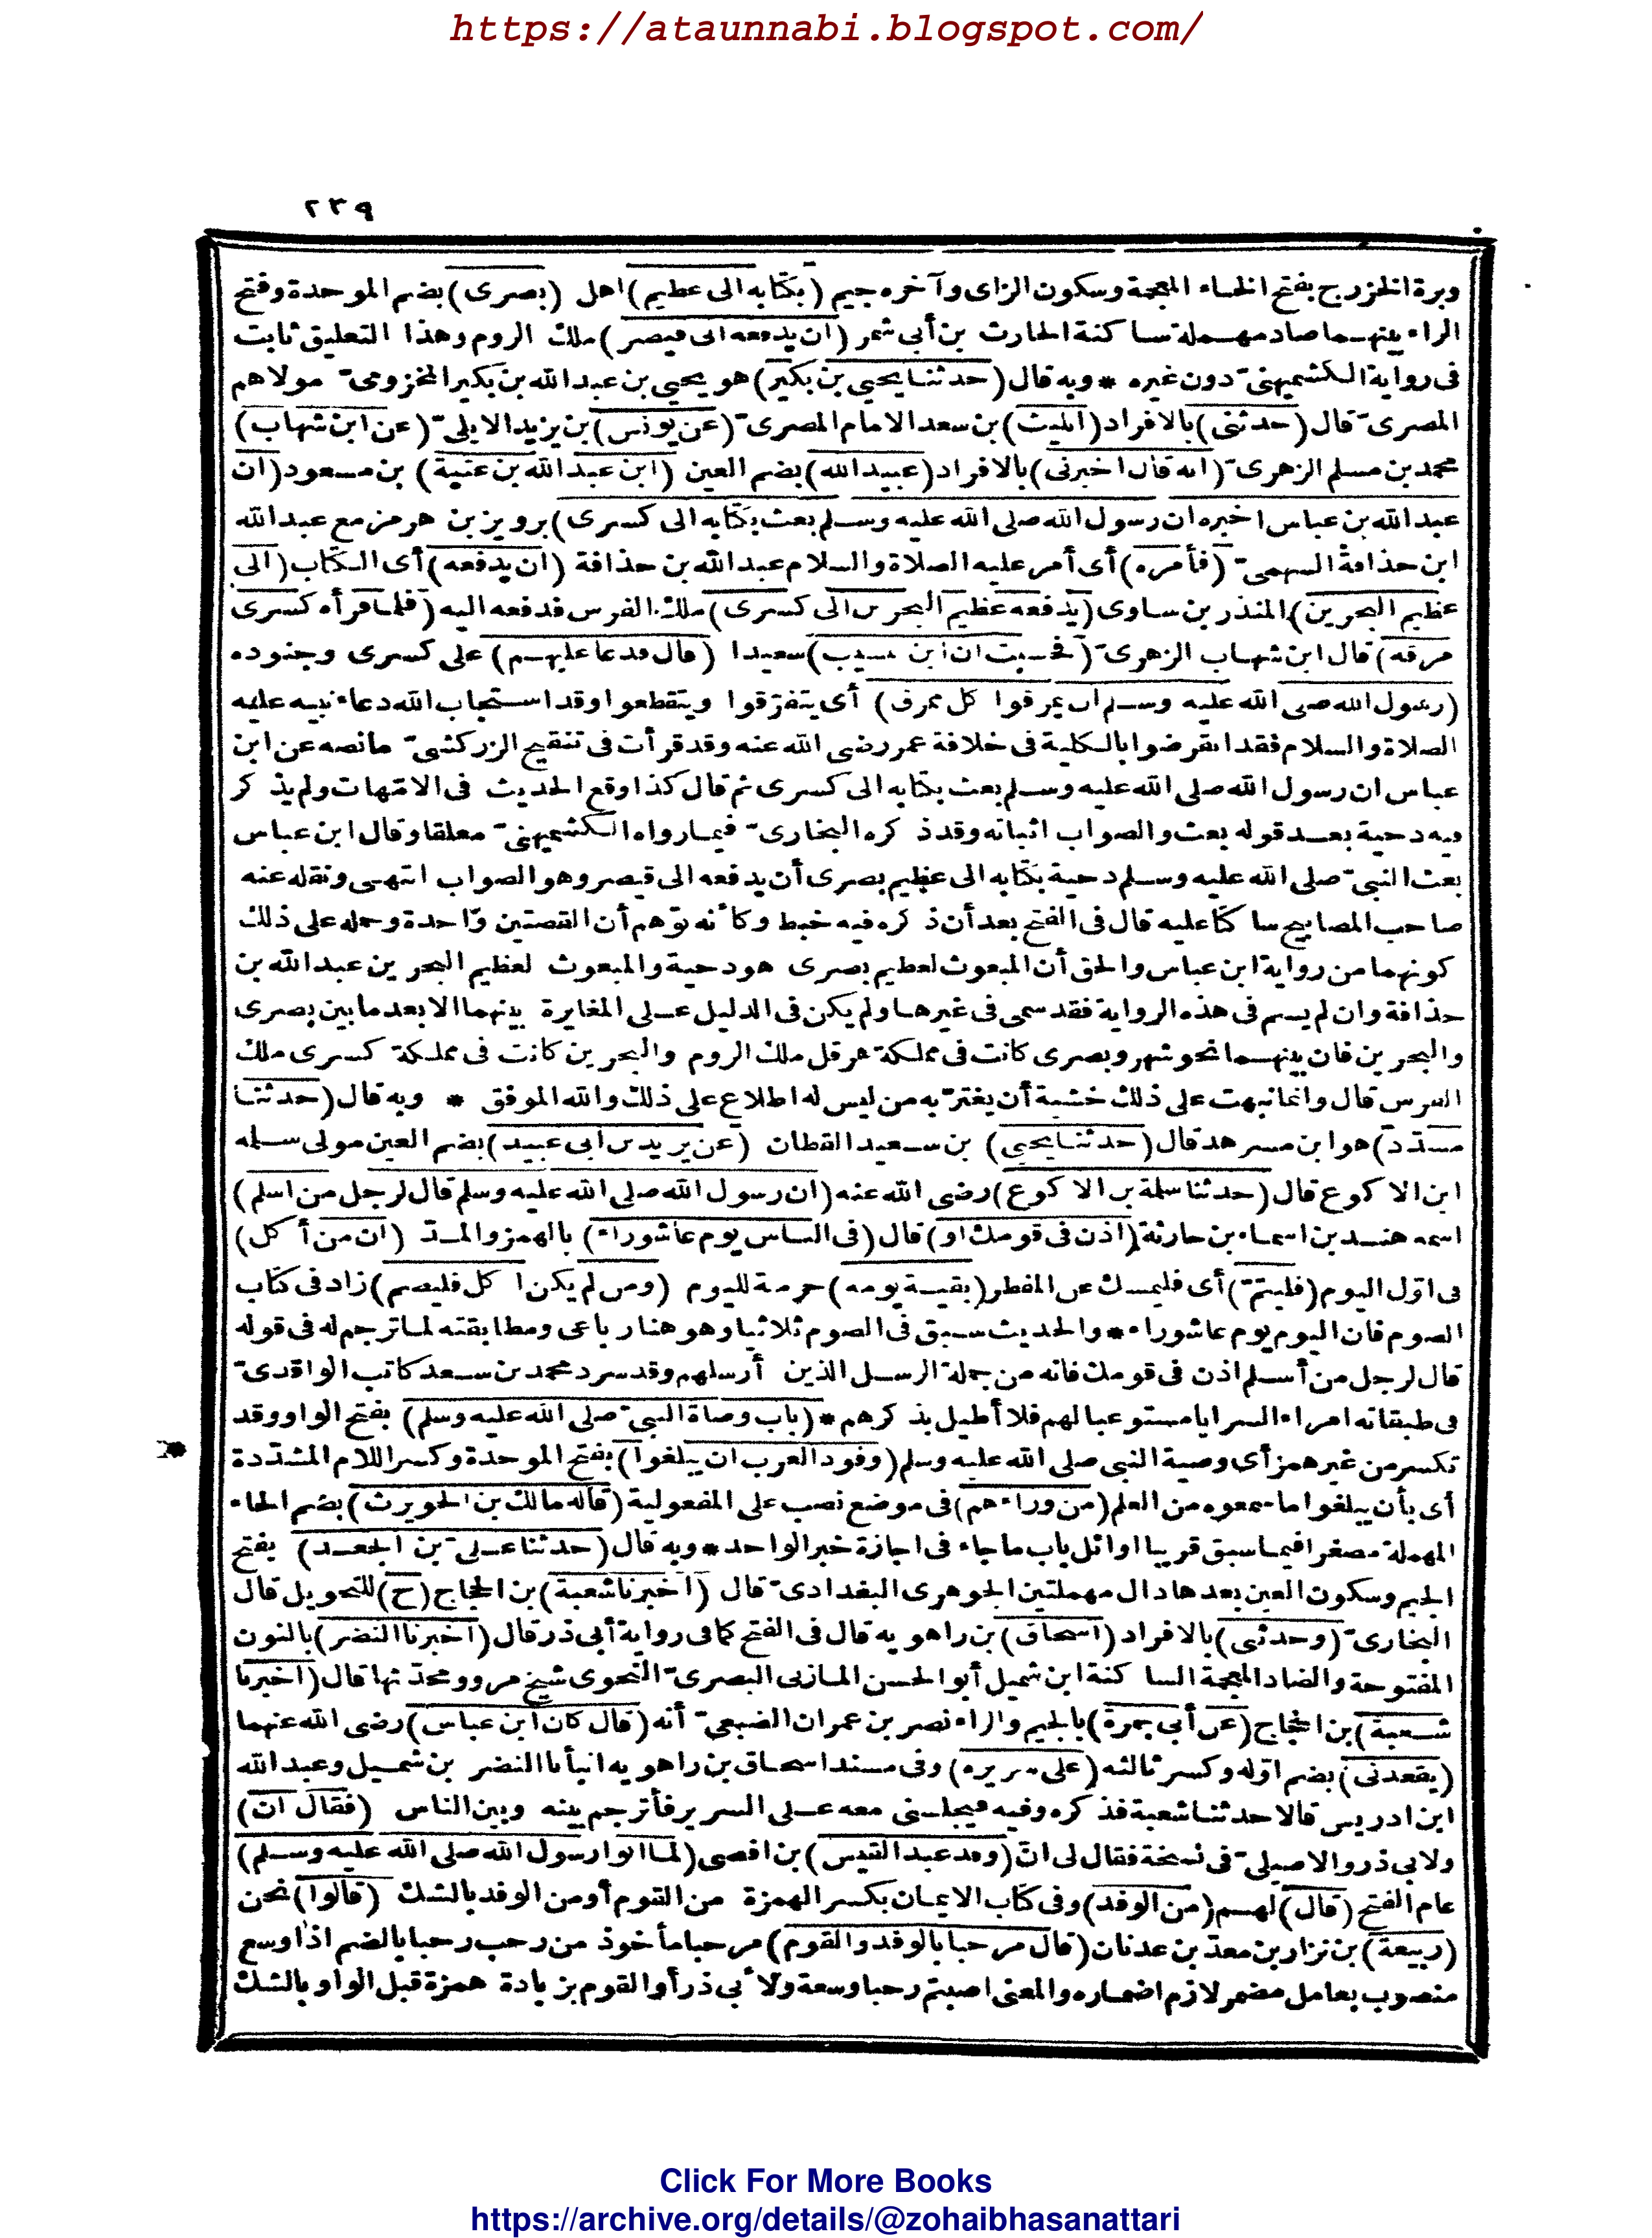 https://ataunnabi.blogspot.com/
٢٣٩
وبرة الخزرج بفتح الخاء المعجمة وسكون الزاى وآخره جيم (بكتابه الى عظيم) اهل (بصرى) بضم الموحدة وفتح
الراء بينهما صاد مهملة ساكنة الحارث بن أبي شمر (ان يدفعه الى قيصر) ملك الروم وهذا التعليق ثابت
فى رواية الكشميهنىّ دون غيره * وبه قال (حدثنا يحيى بن بكير) هو يحيى بن عبد الله بن بكير المخزومىّ مولاهم
المصرىّ قال (حدثنى) بالافراد (الليث) بن سعد الامام المصرىّ (عن يونس) بن يزيد الايلىّ (عن ابن شهاب)
محمد بن مسلم الزهرىّ (انه قال اخبرنى) بالافراد (عبيد الله) بضم العين (ابن عبد الله بن عتبة) بن مسعود (ان
عبد الله بن عباس اخبره ان رسول الله صلى الله عليه وسلم بعث بكتابه الى كسرى) برويز بن هرمز مع عبد الله
ابن حذافة السهمىّ (فأمره) أى أمر عليه الصلاة والسلام عبد الله بن حذافة (ان يدفعه) أى الكتاب (الى
عظيم البحرين) المنذر بن ساوى (يدفعه عظيم البحرين الى كسرى) ملك الفرس فدفعه اليه (فلما قرأه كسرى
مزقه) قال ابن شهاب الزهرىّ (فحسبت ان ابن المسيب) سعيدا (قال فدعا عليهم) على كسرى وجنوده
(رسول الله صلى الله عليه وسلم ان يمزقوا كل ممزق) أى يتفرّقوا ويتقطعوا وقد استجاب الله دعاء نبيه عليه
الصلاة والسلام فقد انقرضوا بالكلية فى خلافة عمر رضى الله عنه وقد قرأت فى تنقيح الزركشىّ مانصه عن ابن
عباس ان رسول الله صلى الله عليه وسلم بعث بكتابه الى كسرى ثم قال كذا وقع الحديث فى الامّهات ولم يذكر
فيه دحية بعد قوله بعث والصواب اثباته وقد ذكره البخارىّ فيما رواه الكشميهنىّ معلقا وقال ابن عباس
بعث النبىّ صلى الله عليه وسلم دحية بكتابه الى عظيم بصرى أن يدفعه الى قيصر وهو الصواب انتهى ونقله عنه
صاحب المصابيح ساكتا عليه قال فى الفتح بعد أن ذكره فيه خبط وكأنه توّهم أن القصتين واحدة وحمله على ذلك
كونهما من رواية ابن عباس والحق أن المبعوث لعظيم بصرى هو دحية والمبعوث لعظيم البحرين عبد الله بن
حذافة وان لم يسم فى هذه الرواية فقد سمى فى غيرها ولم يكن فى الدليل على المغايرة بينهما الا بعد ما بين بصرى
والبحرين فان بينهما نحو شهر وبصرى كانت فى مملكة هرقل ملك الروم والبحرين كانت فى مملكة كسرى ملك
الفرس قال وانما نبهت على ذلك خشية أن يغترّ به من ليس له اطلاع على ذلك والله الموفق * وبه قال (حدثنا
مسدّد) هو ابن مسرهد قال (حدثنا يحيى) بن سعيد القطان (عن يزيد بن ابى عبيد) بضم العين مولى سلمة
ابن الاكوع قال (حدثنا سلمة بن الاكوع) رضى الله عنه (ان رسول الله صلى الله عليه وسلم قال لرجل من اسلم)
اسمه هند بن اسماء بن حارثة (اذن فى قومك او) قال (فى الناس يوم عاشوراء) بالهمز والمدّ (ان من أكل)
فى اوّل اليوم (فليتمّ) أى فليمسك عن المفطر (بقية يومه) حرمة لليوم (ومن لم يكن اكل فليصم) زاد فى كتاب
الصوم فان اليوم يوم عاشوراء * والحديث سبق فى الصوم ثلاثيا وهو هنا رباعى ومطابقته لما ترجم له فى قوله
قال لرجل من أسلم اذن فى قومك فانه من جملة الرسل الذين أرسلهم وقد سرد محمد بن سعد كاتب الواقدىّ
فى طبقاته امراء السرايا مستوعبا لهم فلا أطيل بذكرهم * (باب وصاة النبىّ صلى الله عليه وسلم) بفتح الواو وقد
تكسر من غير همز أى وصية النبى صلى الله عليه وسلم (وفود العرب ان يبلغوا) بفتح الموحدة وكسر اللام المشدّدة
أى بأن يبلغوا ما سمعوه من العلم (من وراءهم) فى موضع نصب على المفعولية (قاله مالك بن الحويرث) بضم الحاء
المهملة مصغرا فيما سبق قريبا اوائل باب ما جاء فى اجازة خبر الواحد * وبه قال (حدثنا علىّ بن الجعد) بفتح
الجيم وسكون العين بعدها دال مهملتين الجوهرى البغدادىّ قال (اخبرنا شعبة) بن الحجاج (ح) للتحويل قال
البخارىّ (وحدثنى) بالافراد (اسحاق) بن راهويه قال فى الفتح كما فى رواية أبى ذر قال (اخبرنا النضر) بالنون
المفتوحة والضاد المعجمة الساكنة ابن شميل أبو الحسن المازنى البصرىّ النحوى شيخ مرو ومحدّثها قال (اخبرنا
شعبة) بن الحجاج (عن أبى جمرة) بالجيم والراء نصر بن عمران الضبعىّ أنه (قال كان ابن عباس) رضى الله عنهما
(يقعدنى) بضم اوّله وكسر ثالثه (على سريره) وفى مسند اسحاق بن راهويه انبأنا النضر بن شميل وعبد الله
ابن ادريس قالا حدثنا شعبة فذكره وفيه فيجلسنى معه على السرير فأترجم بينه وبين الناس (فقال انّ)
ولابى ذر والاصيلىّ فى نسخة فقال لى انّ (وفد عبد القيس) بن افصى (لما اتوا رسول الله صلى الله عليه وسلم)
عام الفتح (قال) لهم (من الوفد) وفى كتاب الايمان بكسر الهمزة من القوم أو من الوفد بالشك (قالوا) نحن
(ربيعة) بن نزار بن معدّ بن عدنان (قال مرحبا بالوفد والقوم) مرحبا مأخوذ من رحب رحبا بالضم اذا وسع
منصوب بعامل مضمر لازم اضماره والمعنى اصبتم رحبا وسعة ولأبى ذر أو القوم بزيادة همزة قبل الواو بالشك
Click For More Books
https://archive.org/details/@zohaibhasanattari